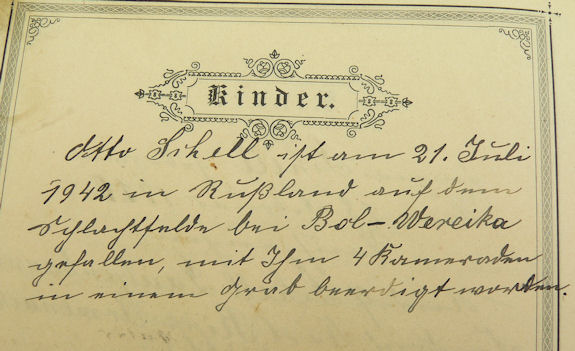 Kinder.
Otto Schell ist am 21. Juli
1942 in Rußland auf dem
Schlachtfelde bei Bol-Wereika
gefallen, mit Ihm 4 Kameraden
in einem Grab beerdigt worden.